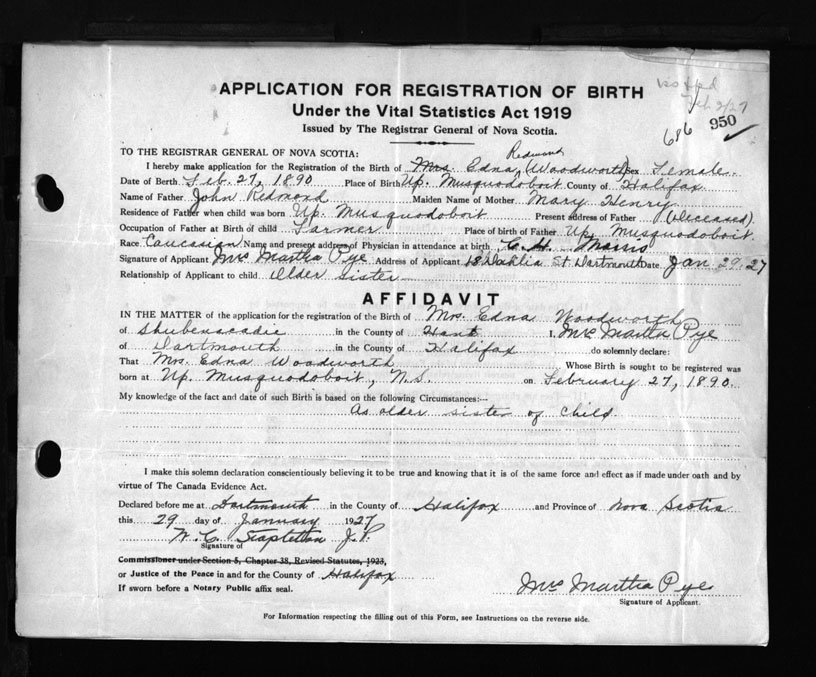 APPLICATION FOR REGISTRATION OF BIRTH
Under the Vital Statistics Act 1919
Issued by The Registrar General of Nova Scotia.
686 950
TO THE REGISTRAR GENERAL OF NOVA SCOTIA:
Redmond
I hereby make application for the Registration of the Birth of Mrs. Edna (Woodworth) Sex Female.
Date of Birth Feb. 27, 1890 Place of Birth Up. Musquodoboit County of Halifax
Name of Father John Redmond Maiden Name of Mother Mary Henry
Residence of Father when child was born Up. Musquodoboit Present address of Father (Deceased).
Occupation of Father at Birth of child Farmer Place of birth of Father Up. Musquodoboit.
Race Caucasian Name and present address of Physician in attendance at birth C. H. Morris
Signature of Applicant Mrs Martha Pye Address of Applicant 18 Dahlia St Dartmouth Date Jan 29. 27
Relationship of Applicant to child Older sister
AFFIDAVIT
IN THE MATTER of the application for the registration of the Birth of Mrs. Edna Woodworth
of Shubenacadie in the County of Hant I, Mrs Martha Pye
of Dartmouth in the County of Halifax do solemnly declare:
That Mrs. Edna Woodworth Whose Birth is sought to be registered was
born at Up. Musquodoboit, N.S. on February 27, 1890.
My knowledge of the fact and date of such Birth is based on the following Circumstances:—
As older sister of child.
I make this solemn declaration conscientiously believing it to be true and knowing that it is of the same force and effect as if made under oath and by
virtue of The Canada Evidence Act.
Declared before me at Dartmouth in the County of Halifax and Province of Nova Scotia
this 29 day of January 1927
W. C. Stapleton J.P.
Signature of
Commissioner under Section 5, Chapter 38, Revised Statutes, 1923,
or Justice of the Peace in and for the County of Halifax
If sworn before a Notary Public affix seal.
Mrs Martha Pye
Signature of Applicant.
For Information respecting the filling out of this Form, see Instructions on the reverse side.